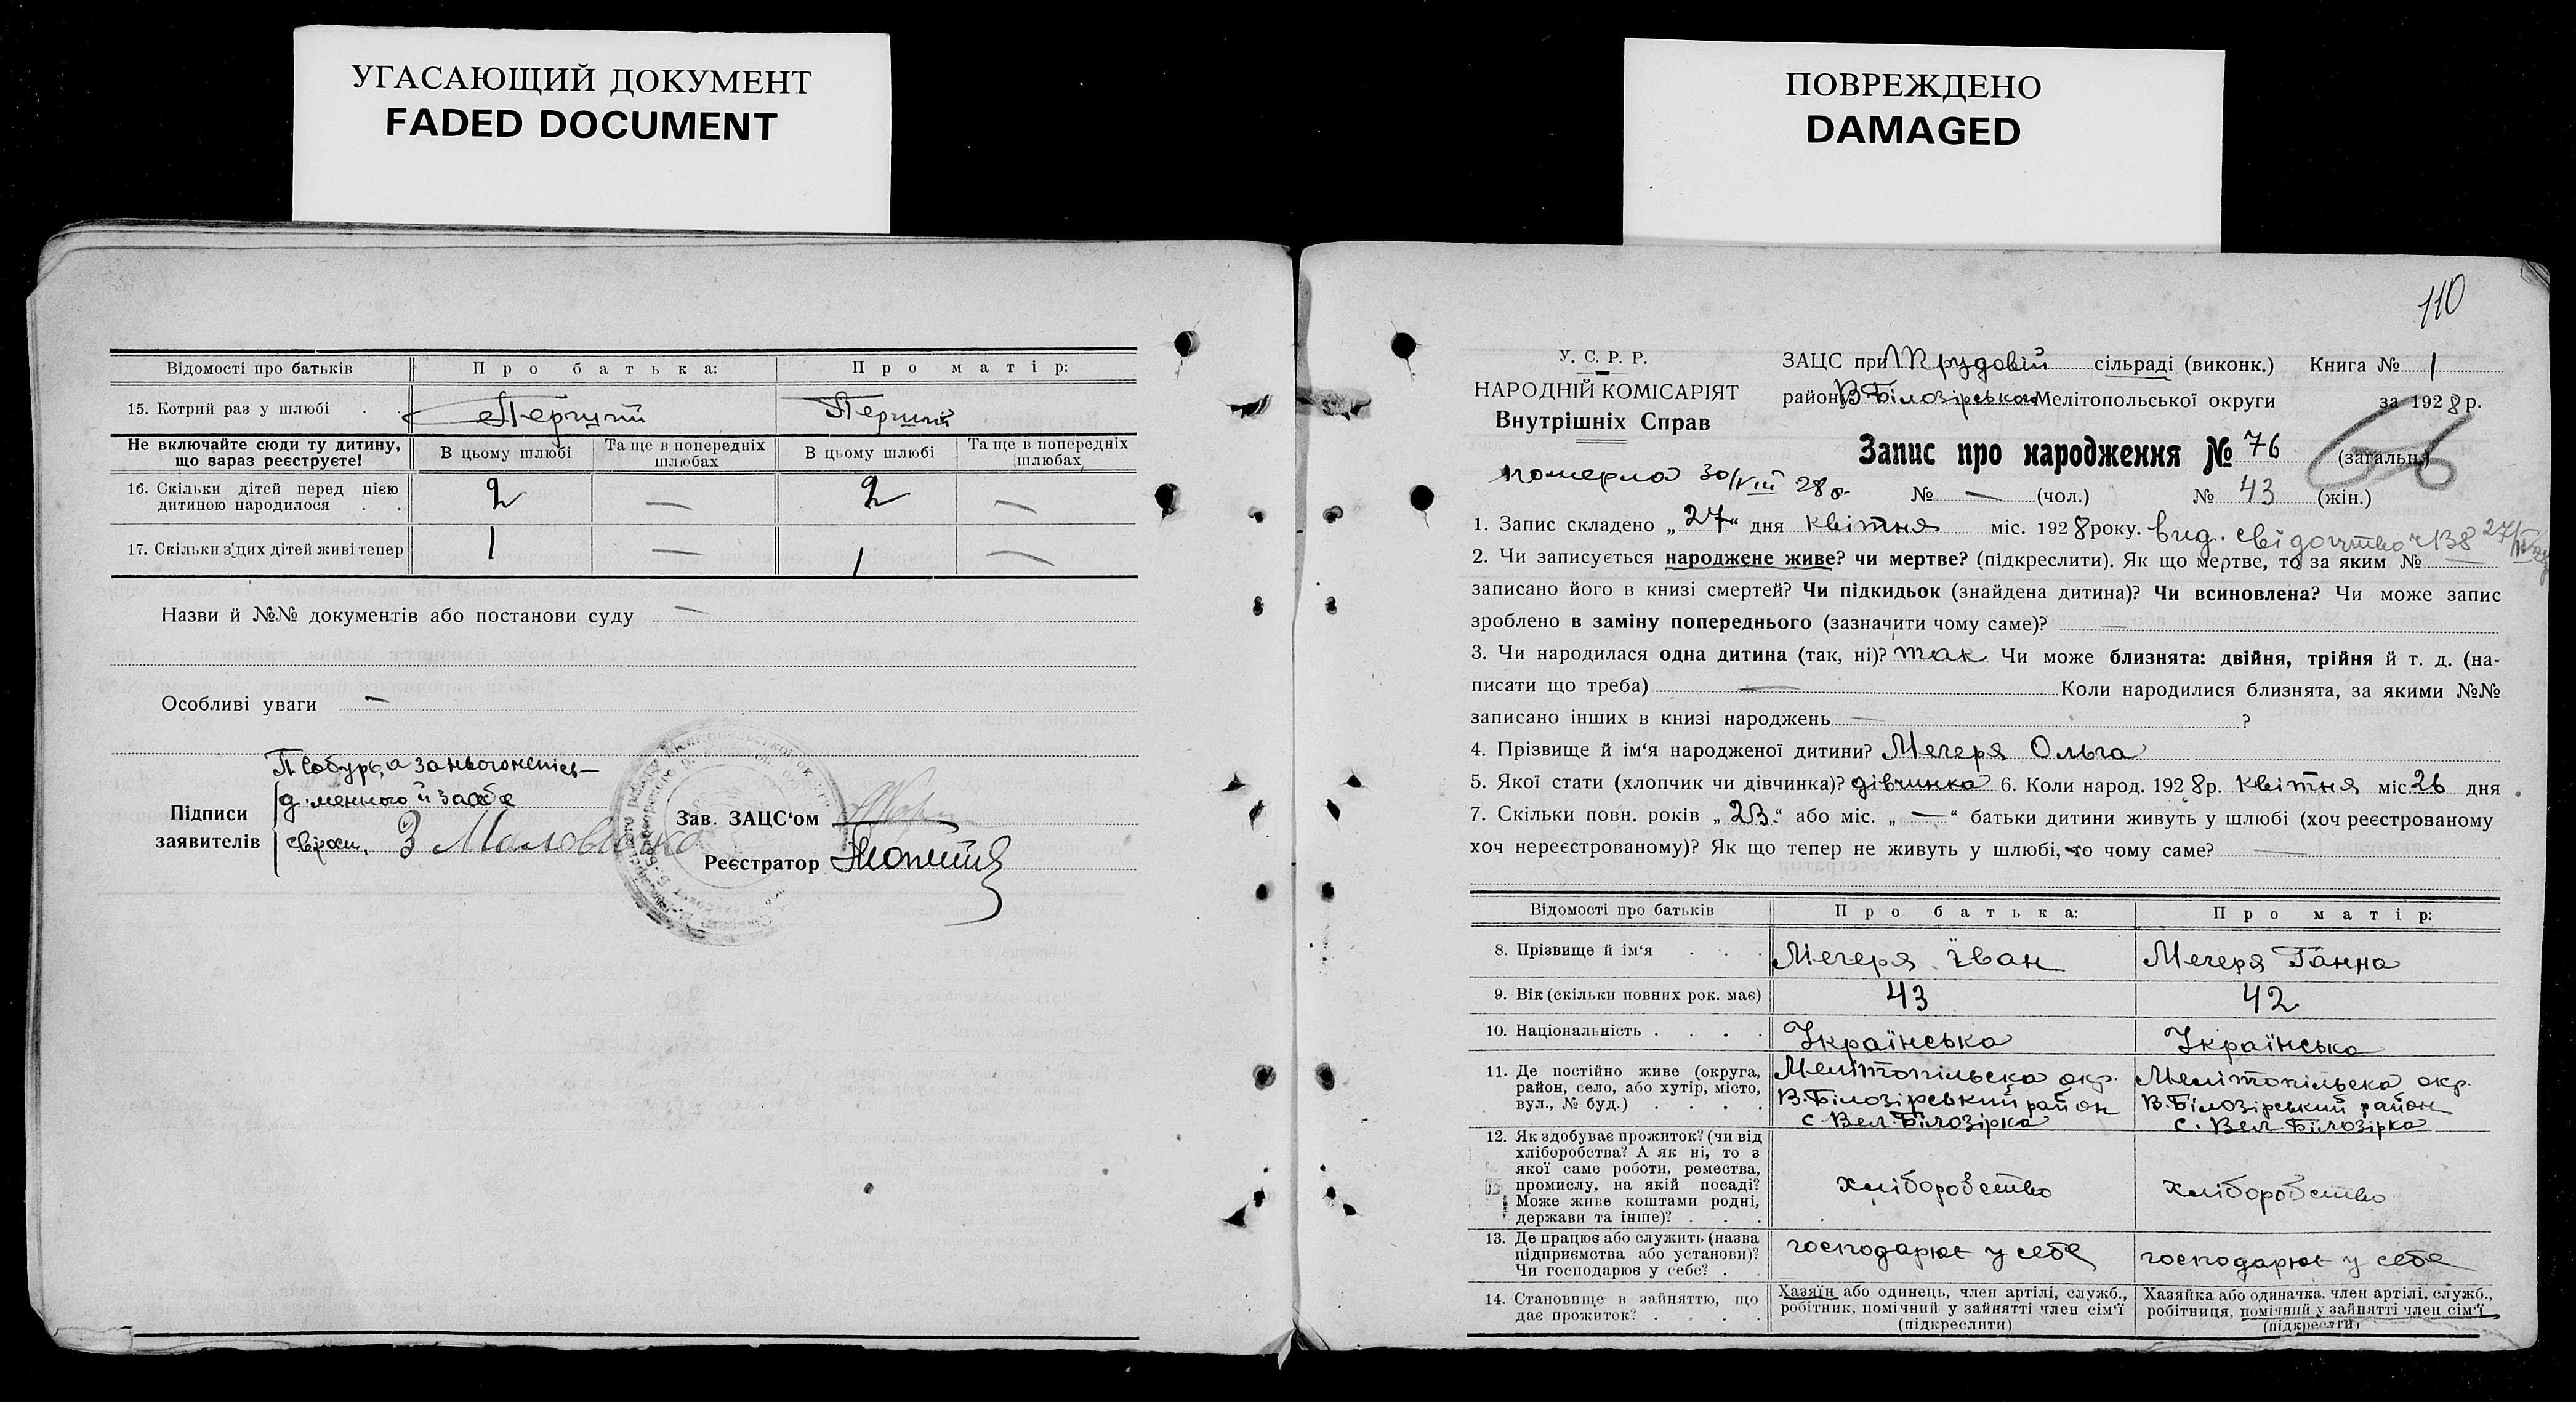 УГАСАЮЩИЙ ДОКУМЕНТ
FADED DOCUMENT
ПОВРЕЖДЕНО
DAMAGED
Відомості про батьків Про батька: Про матір:
15. Котрий раз у шлюбі . . Перший Перший
Не включайте сюди ту дитину, що вараз реєструєте! В цьому шлюбі Та ще в попередніх шлюбах В цьому шлюбі Та ще в попередніх шлюбах
16. Скільки дітей перед цією дитиною народилося . . 2 — 2 —
17. Скільки з'цих дітей живі тепер 1 — 1 —
Назви й №№ документів або постанови суду —
Особливі уваги —
Підписи заявителів
Зав. ЗАЦС‘ом
Реєстратор
110
У. С. Р. Р.
НАРОДНІЙ КОМІСАРІЯТ
Внутрішніх Справ
ЗАЦС при Трудовій сільраді (виконк.) Книга № 1
району В-Білозірського Мелітопольської округи за 1928 р.
Запис про народження № 76 (загальн.)
померла 30/VIII 28 р. № — (чол.) № 43 (жін.)
1. Запис складено „27“ дня квітня міс. 1928 року. вид. свідоцтво ч 138 27/IV
2. Чи записується народжене живе? чи мертве? (підкреслити). Як що мертве, то за яким №
записано його в книзі смертей? Чи підкидьок (знайдена дитина)? Чи всиновлена? Чи може запис
зроблено в заміну попереднього (зазначити чому саме)? —
3. Чи народилася одна дитина (так, ні)? так Чи може близнята: двійня, трійня й т. д. (на-
писати що треба) — Коли народилися близнята, за якими №№
записано інших в книзі народжень — ?
4. Прізвище й ім‘я народженої дитини? Мечеря Ольга
5. Якої стати (хлопчик чи дівчинка)? дівчинка 6. Коли народ. 1928 р. квітня міс. 26 дня
7. Скільки повн. років „23“ або міс. „—“ батьки дитини живуть у шлюбі (хоч реєстрованому
хоч нереєстрованому)? Як що тепер не живуть у шлюбі, то чому саме? —
Відомості про батьків Про батька: Про матір:
8. Прізвище й ім‘я . . . Мечеря Їван Мечеря Ганна
9. Вік (скільки повних рок. має) 43 42
10. Національність . . . . Українська Українська
11. Де постійно живе (округа, район, село, або хутір, місто, вул., № буд.) . . . . Мелітопільска окр. В.Білозірський район с. Вел. Білозірка Мелітопільска окр. В. Білозірський район с. Вел. Білозірка
12. Як здобуває прожиток? (чи від хліборобства? А як ні, то з якої саме роботи, ремества, промислу, на якій посаді? Може живе коштами родні, держави та інше)? . . . хліборобство хліборобство
13. Де працює або служить (назва підприємства або установи)? Чи господарює у себе? . господарює у себе господарює у себе
14. Становище в зайняттю, що дає прожиток? . . . . Хазяїн або одинець, член артілі, служб., робітник, помічний у зайнятті член сім‘ї (підкреслити) Хазяйка або одиначка. член артілі, служб., робітниця, помічний у зайнятті член сім‘ї (підкреслги)